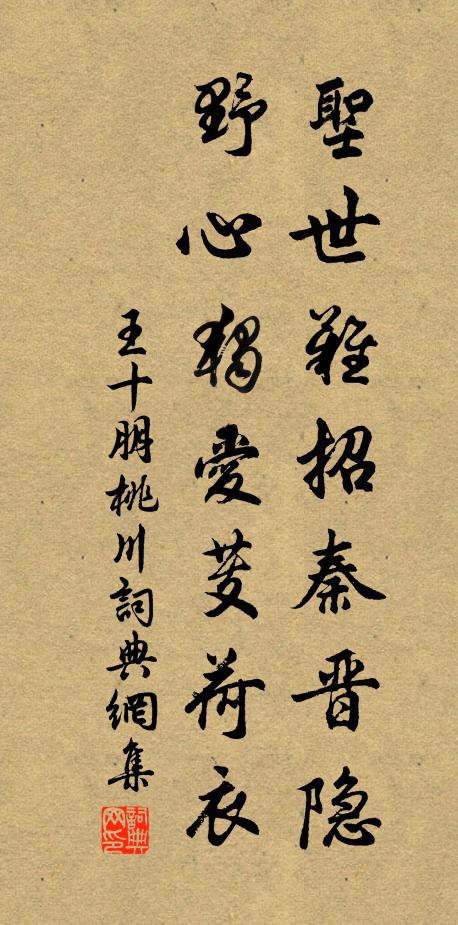 聖世難招秦晋隐
野心獨愛芰荷衣
王十朋桃川詞典網集
詞典网印